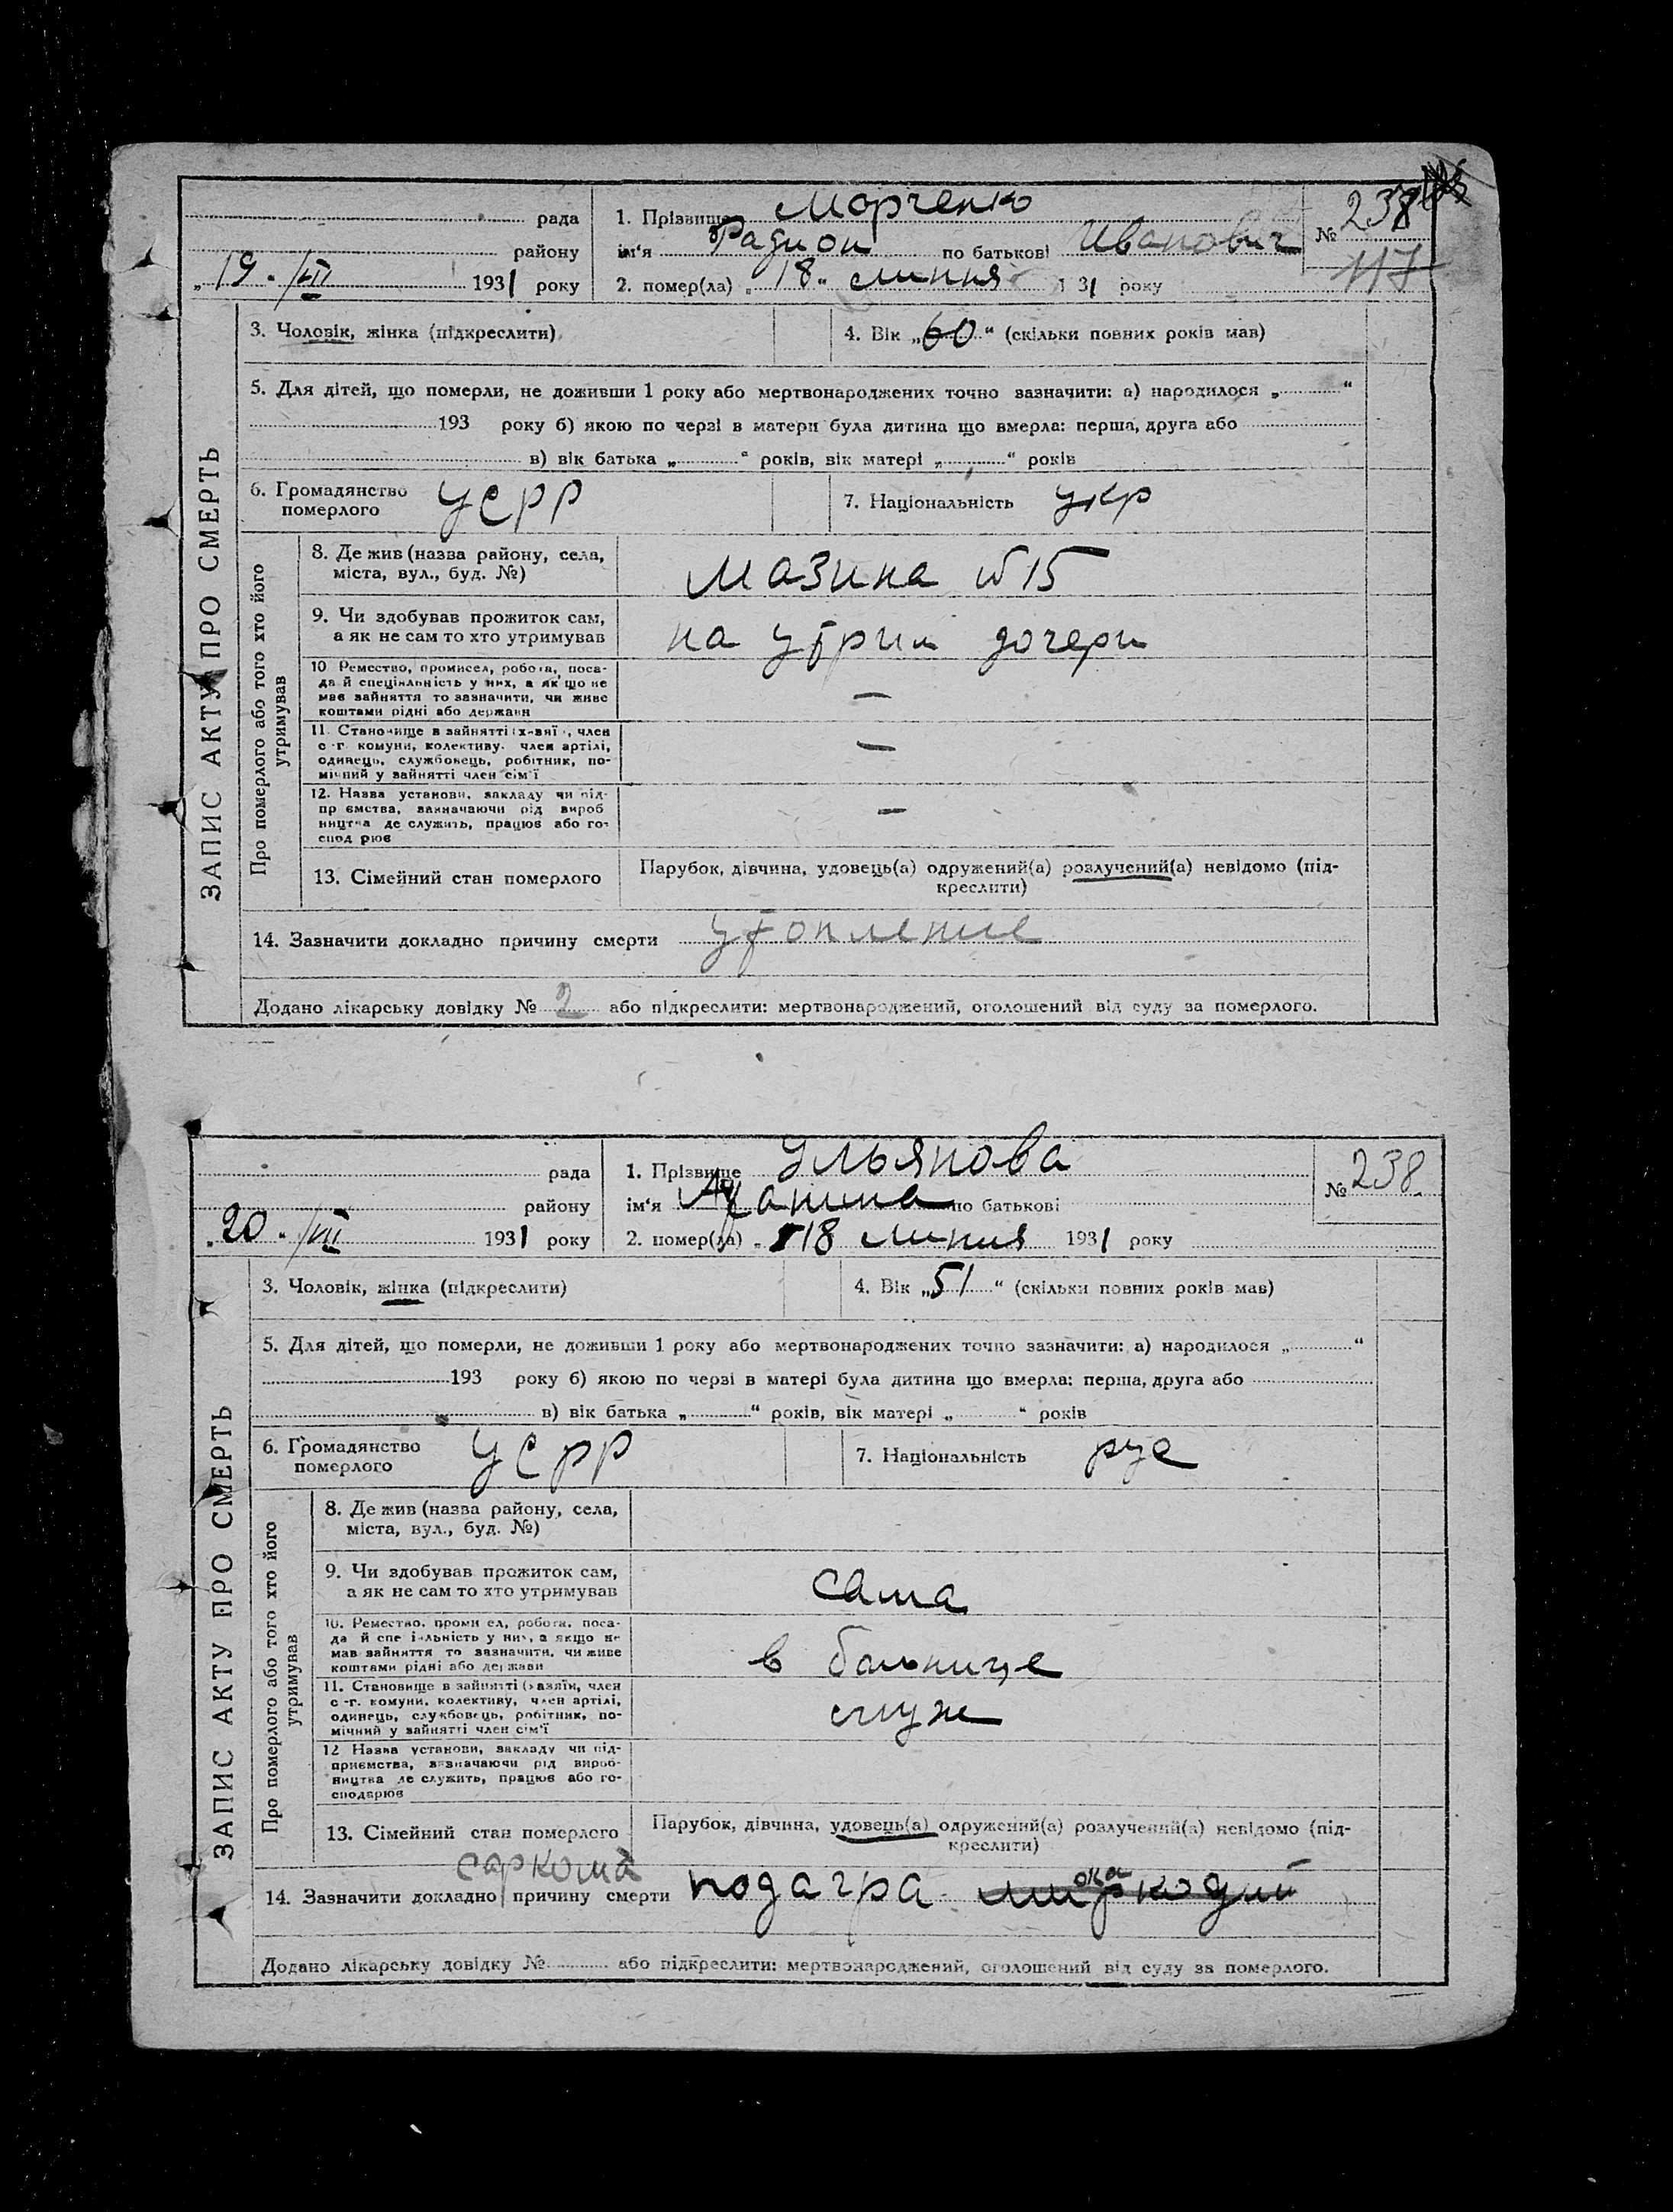 рада
району
„19 · /VII 1931 року
1. Прізвище Морченко
ім'я Радион по батькові Иванович
2. помер(ла) „18„ липня 1 31 року
№ 238
117
ЗАПИС АКТУ ПРО СМЕРТЬ
3. Чоловік, жінка (підкреслити)
4. Вік „60“ (скільки повних років мав)
5. Для дітей, що померли, не доживши 1 року або мертвонароджених точно зазначити: а) народилося „ “
193 року б) якою по черзі в матери була дитина що вмерла: перша, друга або
в) вік батька „ “ років, вік матері „ “ років
6. Громадянство
померлого УСРР
7. Національність укр
Про померлого або того хто його
утримував
8. Де жив (назва району, села,
міста, вул., буд. №)
Мазина №15
9. Чи здобував прожиток сам,
а як не сам то хто утримував
на утрим дочери
10 Ремество, промисел, робота, поса-
да й спеціяльність у них, а якщо не
має зайняття то зазначити, чи живе
коштами рідні або держави
—
11. Становище в зайнятті (хазяї , член
с-г. комуни, колективу, член артілі,
одинець, службовець, робітник, по-
мічний у зайнятті член сім'ї
—
12. Назва установи, закладу чи під-
пр ємства, зазначаючи рід вироб
ництва де служить, працює або го-
спод рює
—
13. Сімейний стан померлого
Парубок, дівчина, удовець(а) одружений(а) розлучений(а) невідомо (під-
креслити)
14. Зазначити докладно причину смерти утопление
Додано лікарську довідку № 2 або підкреслити: мертвонароджений, оголошений від суду за померлого.
рада
району
„20 · /VII 1931 року
1. Прізвище Ульянова
ім'я по батькові
2. помер(ла) „18 липня 1931 року
№ 238
ЗАПИС АКТУ ПРО СМЕРТЬ
3. Чоловік, жінка (підкреслити)
4. Вік „51“ (скільки повних років мав)
5. Для дітей, що померли, не доживши 1 року або мертвонароджених точно зазначити: а) народилося „ “
193 року б) якою по черзі в матері була дитина що вмерла: перша, друга або
в) вік батька „ “ років, вік матері „ “ років
6. Громадянство
померлого УСРР
7. Національність рус
Про померлого або того хто його
утримував
8. Де жив (назва району, села,
міста, вул., буд. №)
9. Чи здобував прожиток сам,
а як не сам то хто утримував
сама
10. Ремество, проми ел, робота, поса-
да й спе іяльність у них, а якщо не
мав зайняття то зазначити, чи живе
коштами рідні або держави
в больнице
11. Становище в зайнятті (хазяїн, член
с-г. комуни, колективу, член артілі,
одинець, службовець, робітник, по-
мічний у зайнятті член сім'ї
служ
12 Назва установи, закладу чи під-
приємства, зазначаючи рід вироб-
ництва де служить, працює або го-
сподарює
13. Сімейний стан померлого
Парубок, дівчина, удовець(а) одружений(а) розлучений(а) невідомо (під-
креслити)
саркома
14. Зазначити докладно причину смерти подагра
Додано лікарську довідку № або підкреслити: мертвонароджений, оголошений від суду за померлого.